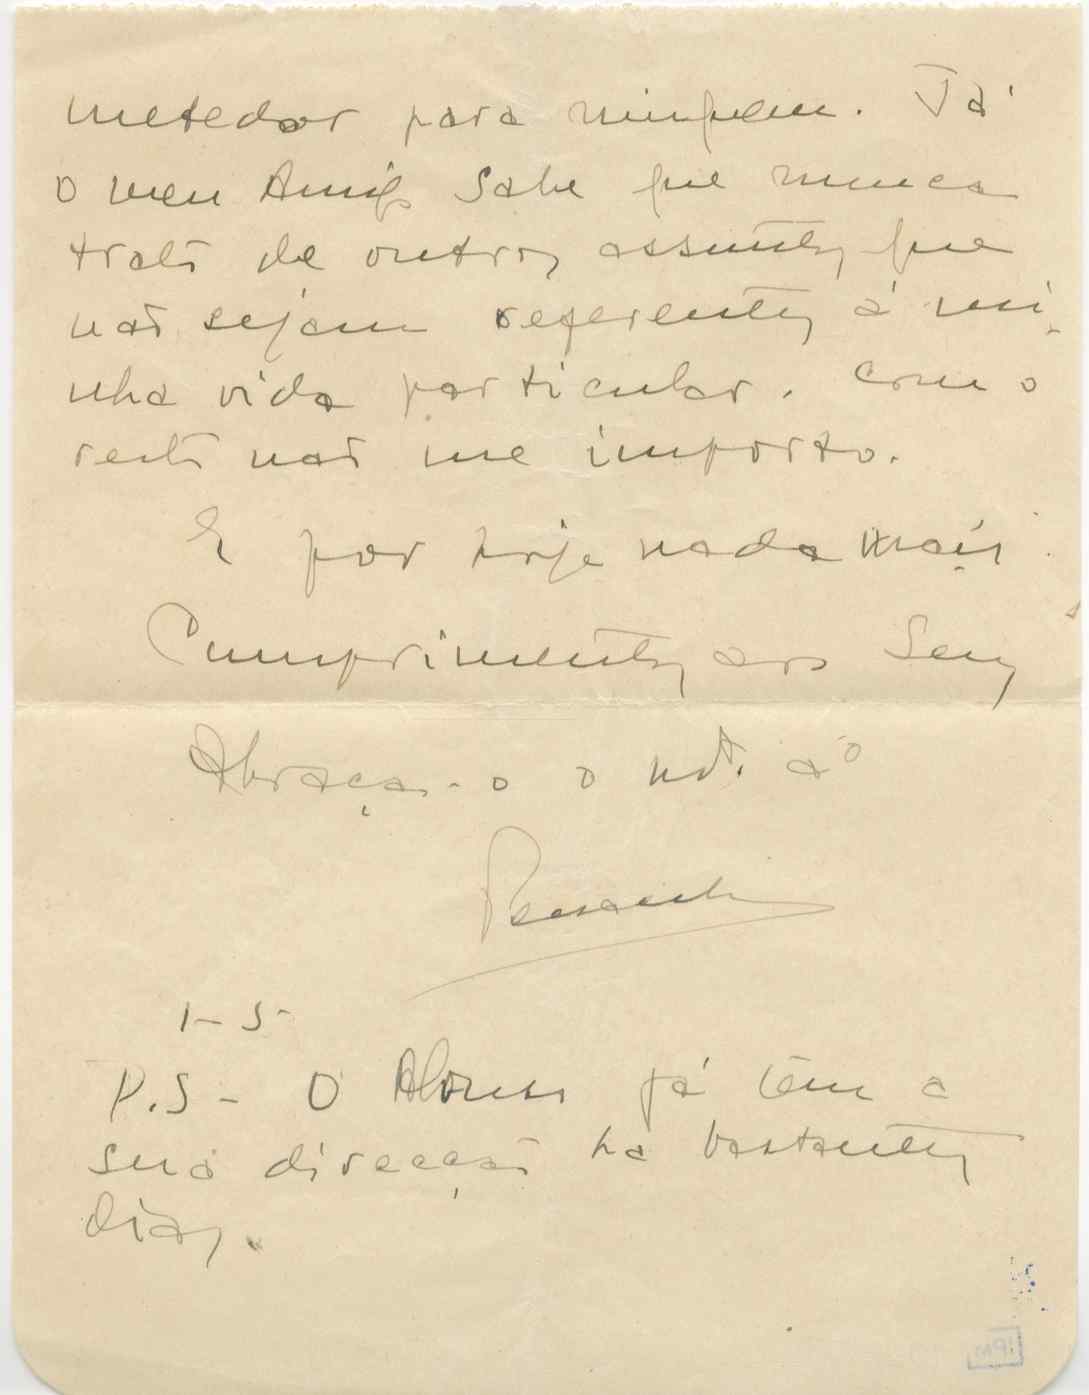 metedor para ninguem. Já
o meu Amigo sabe que nunca
trato de outros assuntos que
não sejam referentes á mi-
nha vida particular. Com o
resto não me importo.
E por hoje nada mais
Cumprimentos aos Seus
Abraça-o o mt. aº
1-5-
P.S- O Afonso já tem a
sua direcção ha bastantes
dias.
IPM